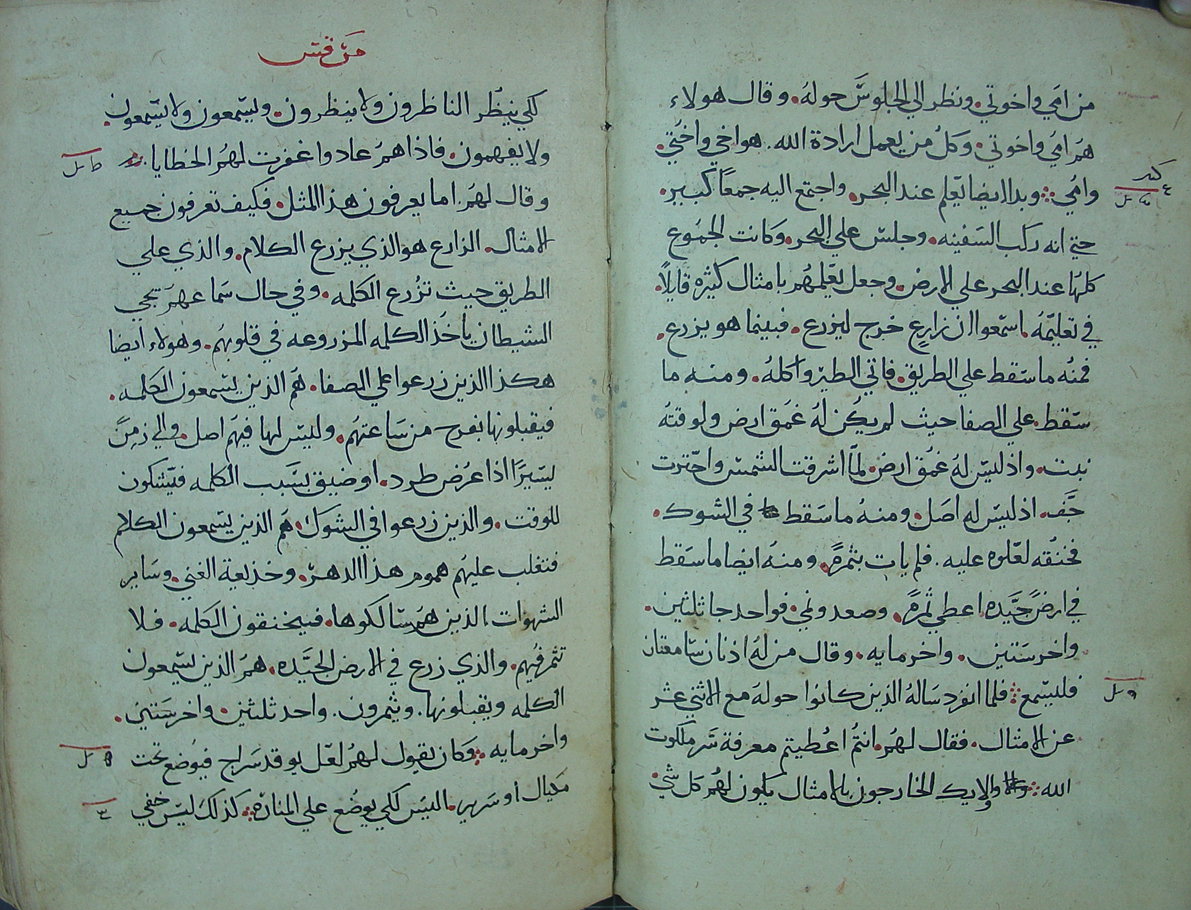 من امي واخوتي. ونظر الي الجلوس حوله. وقال هولاء
هم امي واخوتي. وكل من يعمل ارادة الله. هو اخي واختي.
وامي: وبدا ايضا يعلم عند البحر. واجتمع اليه جمعا كبير.
حتي انه ركب السفينه. وجلس علي البحر. وكانت الجموع
كلها عند البحر علي الارض. وجعل يعلمهم بامثال كثيره قايلا.
في تعليمه. اسمعوا ان زارع خرج ليزرع. فبينما هو يزرع.
فمنه ما سقط علي الطريق. فاتي الطير واكله. ومنه ما
سقط. علي الصفا حيث لم يكن له عمق ارض ولوقته
نبت. واذ ليس له عمق ارض. لما اشرقت الشمس واحترت
جف. اذ ليس له اصل. ومنه ما سقط في الشوك.
فخنقه لعلوه عليه. فلم يات بثمرة. ومنه ايضا ما سقط
في ارض جيده اعطي ثمرة. وصعد ونمي. فواحد جا ثلثين.
واخر ستين. واخر مايه. وقال من له اذنان سامعتان
فليسمع: فلما انفرد ساله الذين كانوا حوله مع الاثني عشر
عن الامثال. فقال لهم. انتم اعطيتم معرفة سر ملكوت
الله: واوليك الخارجون بالامثال يكون لهم كل شي.
من فتس
لكي ينظر الناظرون ولا ينظرون. ويسمعون ولا يسمعون.
ولا يفهمون. فاذا هم عادوا غفرت لهم الخطايا.
وقال لهم. اما يعرفون هذا المثل. فكيف تعرفون جميع
الامثال. الزارع هو الذي يزرع الكلام. والذي علي
الطريق حيث تزرع الكلمه. وفي حال سماعهم يجي
الشيطان ياخذ الكلمه المزروعه في قلوبهم. وهولاء ايضا
هكذا الذين زرعوا علي الصفا. هم الذين يسمعون الكلمه.
فيقبلونها بفرح من ساعتهم. وليس لها فيهم اصل. والي زمن
يسيرا اذا عرض طرد. او ضيق بسبب الكلمه فيشكون
للوقت. والذين زرعوا في الشوك. هم الذين يسمعون الكلام
فتغلب عليهم هموم هذا الدهر. وخديعة الغني. وساير
الشهوات الذين هم سالكوها. فيختنقون الكلمه. فلا
تثمر فيهم. والذي زرع في الارض الجيده. هم الذين يسمعون
الكلمه ويقبلونها. ويثمرون. واحد ثلثين. واخر ستين.
واخر مايه: وكان يقول لهم لعل يوقد سراج فيوضع تحت
مكيال او سرير. اليس لكي يوضع علي المناره: كذلك ليس خفي